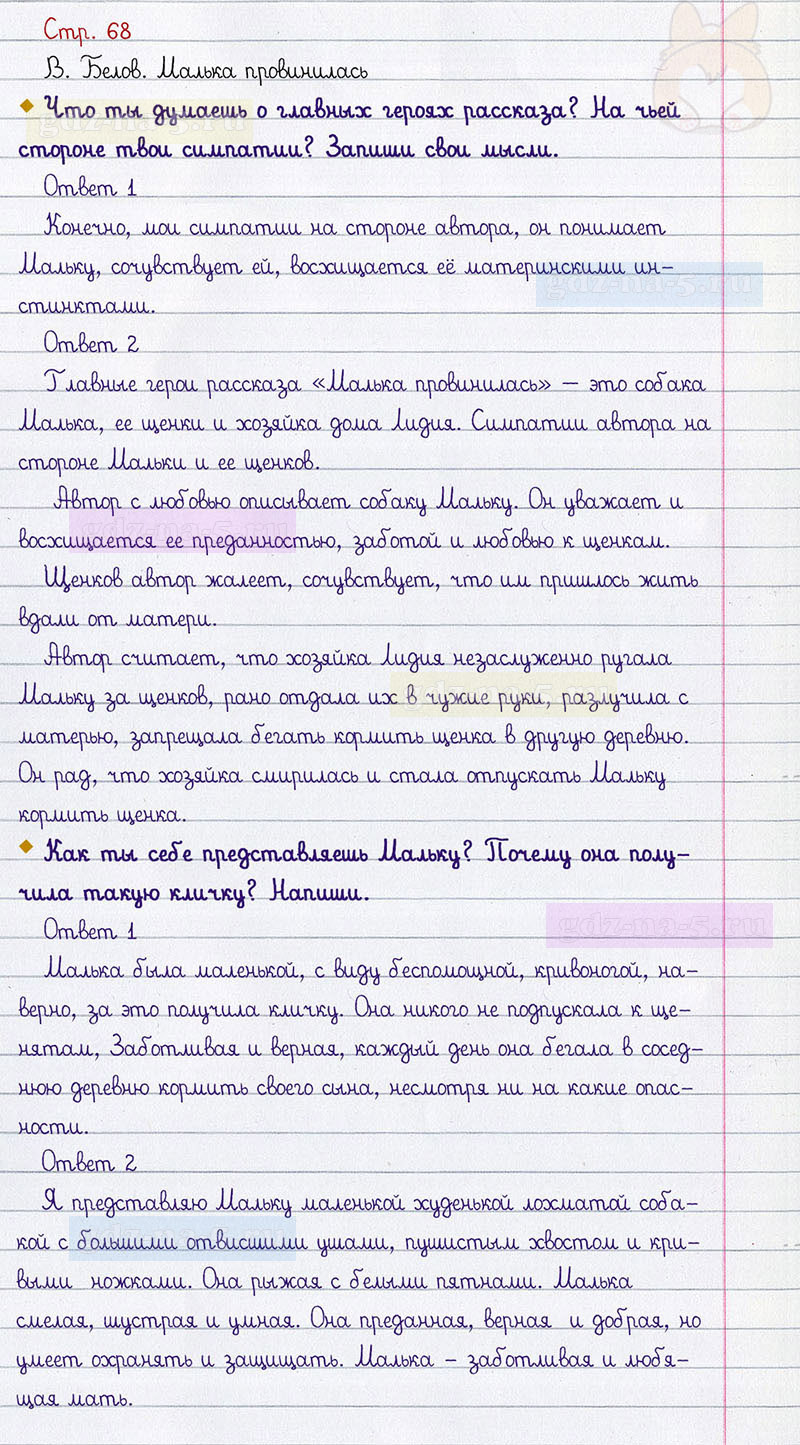 Стр. 68
В. Белов. Малька провинилась
Что ты думаешь о главных героях рассказа? На чьей
стороне твои симпатии? Запиши свои мысли.
gdz-na-5.ru
Ответ 1
Конечно, мои симпатии на стороне автора, он понимает
Мальку, сочувствует ей, восхищается её материнскими ин-
gdz-na-5.ru
стинктами.
Ответ 2
Главные герои рассказа «Малька провинилась» – это собака
Малька, ее щенки и хозяйка дома Лидия. Симпатии автора на
стороне Мальки и ее щенков.
Автор с любовью описывает собаку Мальку. Он уважает и
gdz-na-5.ru
восхищается ее преданностью, заботой и любовью к щенкам.
Щенков автор жалеет, сочувствует, что им пришлось жить
вдали от матери.
Автор считает, что хозяйка Лидия незаслуженно ругала
Мальку за щенков, рано отдала их в чужие руки, разлучила с
gdz-na-5.ru
матерью, запрещала бегать кормить щенка в другую деревню.
Он рад, что хозяйка смирилась и стала отпускать Мальку
кормить щенка.
Как ты себе представляешь Мальку? Почему она полу-
чила такую кличку? Напиши.
gdz-na-5.ru
Ответ 1
Малька была маленькой, с виду беспомощной, кривоногой, на-
верно, за это получила кличку. Она никого не подпускала к ще-
нятам, Заботливая и верная, каждый день она бегала в сосед-
нюю деревню кормить своего сына, несмотря ни на какие опас-
ности.
Ответ 2
Я представляю Мальку маленькой худенькой лохматой соба-
кой с большими отвисшими ушами, пушистым хвостом и кри-
gdz-na-5.ru
выми ножками. Она рыжая с белыми пятнами. Малька
смелая, шустрая и умная. Она преданная, верная и добрая, но
умеет охранять и защищать. Малька – заботливая и любя-
щая мать.